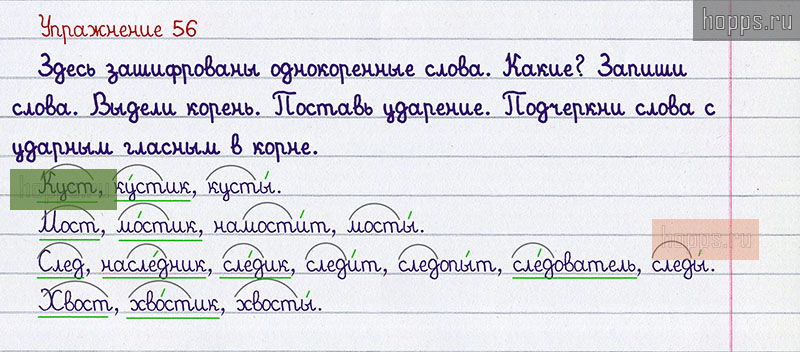 hopps.ru
Упражнение 56
Здесь зашифрованы однокоренные слова. Какие? Запиши
слова. Выдели корень. Поставь ударение. Подчеркни слова с
ударным гласным в корне.
Куст, ку́стик, кусты́.
Мост, мо́стик, намости́т, мосты́.
hopps.ru
След, насле́дник, сле́дик, следи́т, следопы́т, сле́дователь, следы́.
Хвост, хво́стик, хвосты́.